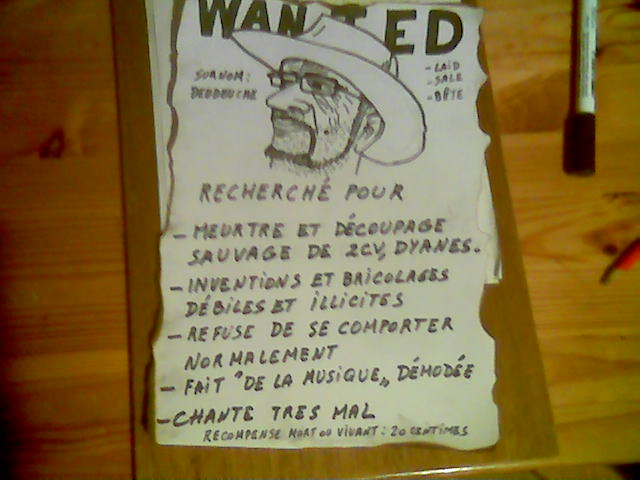 WANTED
SURNOM:
DEUDEUCHE
- LAID
- SALE
- BÊTE
RECHERCHÉ POUR
- MEURTRE ET DÉCOUPAGE
SAUVAGE DE 2CV, DYANES.
- INVENTIONS ET BRICOLAGES
DÉBILES ET ILLICITES
- REFUSE DE SE COMPORTER
NORMALEMENT
- FAIT "DE LA MUSIQUE" DÉMODÉE
- CHANTE TRES MAL
RECOMPENSE MORT OU VIVANT : 20 CENTIMES